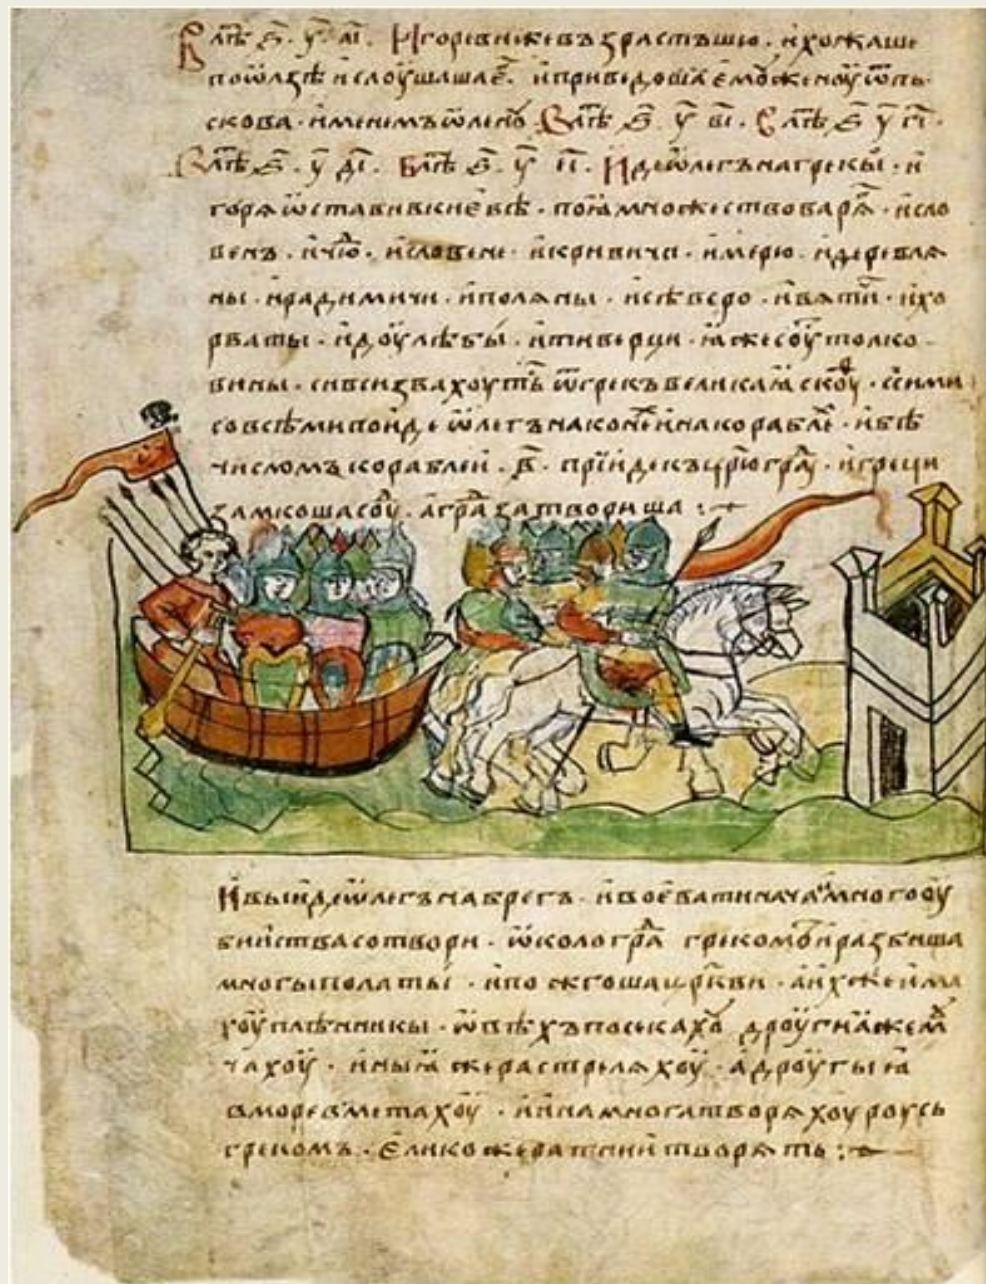 В лѣⷮ ҂ѕ҃. у҃. а҃і. Игореви же възрастъшю. и хожаше
по ѡлзѣ и слоушаша еⷢ. и приведоша емоу женоу ѿ пь
скова. именемъ ѡленоу. В лѣⷮ ҂ѕ҃. у҃ в҃і. В лѣⷮ ҂ѕ҃ у҃ г҃і.
В лѣⷮ ҂ѕ҃. у҃ д҃і. В лѣⷮ ҂ѕ҃. у҃ е҃і. Иде ѡлегъ на грекы. и
горя ѡставив в киеве. поя множество варяⷢ. и сло
венъ. и чюⷣ. и словене. и кривичи. и мерю. и деревля
ны. и радимичи. и поляны. и сѣверо. и вятичи. и хо
рваты. и доулѣбы. и тиверци. яже соуⷮ толко
вины. си вси звахоутьⷭ ѿ грекъ великая скоуⷴ. с сими
со всѣми поиде ѡлегъ на конеⷯ и на корабле. и бѣ
числомъ кораблеи. в҃. прииде къ цр҃юграⷣ. и греци
замкоша соуⷣ. а граⷣ затвориша :~
И выиде ѡлегъ на брегъ. и воевати начаⷮ. и много оу
биства сотвори. ѡколо граⷣа грекомъ. и разбиша
многы полаты. и пожгоша цр҃кви. а их же има
хоу плѣнникы. ѡвѣхъ посекахоу дроугия же моⷱ
чахоу. иныя же растреляхоу. а дроугыя
в море вметахоу. и ина многа творяхоу роусь
грекомъ. елико же ратнии творять :~